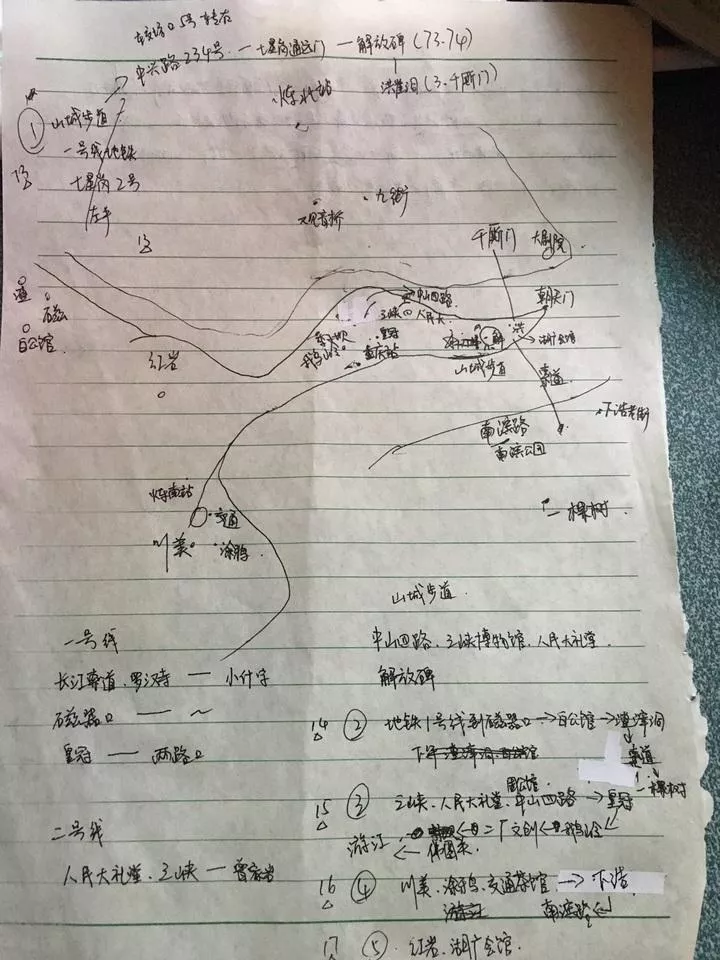 中兴路234号 — 七星岗通远门 — 解放碑(73.74)
洪崖洞(3.千厮门)
火车北站
① 山城步道
一号线地铁
13
七星岗2号
左手
13
九街
观音桥
千厮门
大剧院
朝天门
中山四路
三峡
人民大
渣
磁
白公馆
红岩
李子坝
鹅岭
皇冠
重庆站
解
洪
湖广会馆
山城步道
索道
下浩老街
南滨路
南滨公园
一棵树
火车南站
交通
川美
涂鸦
山城步道
一号线
中山四路、三峡博物馆、人民大礼堂
长江索道、罗汉寺 — 小什字
解放碑
磁器口 — ~
14 ② 地铁1号线到磁器口→白公馆→渣滓洞
皇冠 — 两路口
索道
一棵树
周公馆
15 ③ 三峡、人民大礼堂、中山四路→皇冠
二号线
游江
二厂文创←鹅岭
人民大礼堂、三峡 — 曾家岩
16 ④ 川美、涂鸦、交通茶馆→下浩
游江
南滨路
17 ⑤ 红岩、湖广会馆.